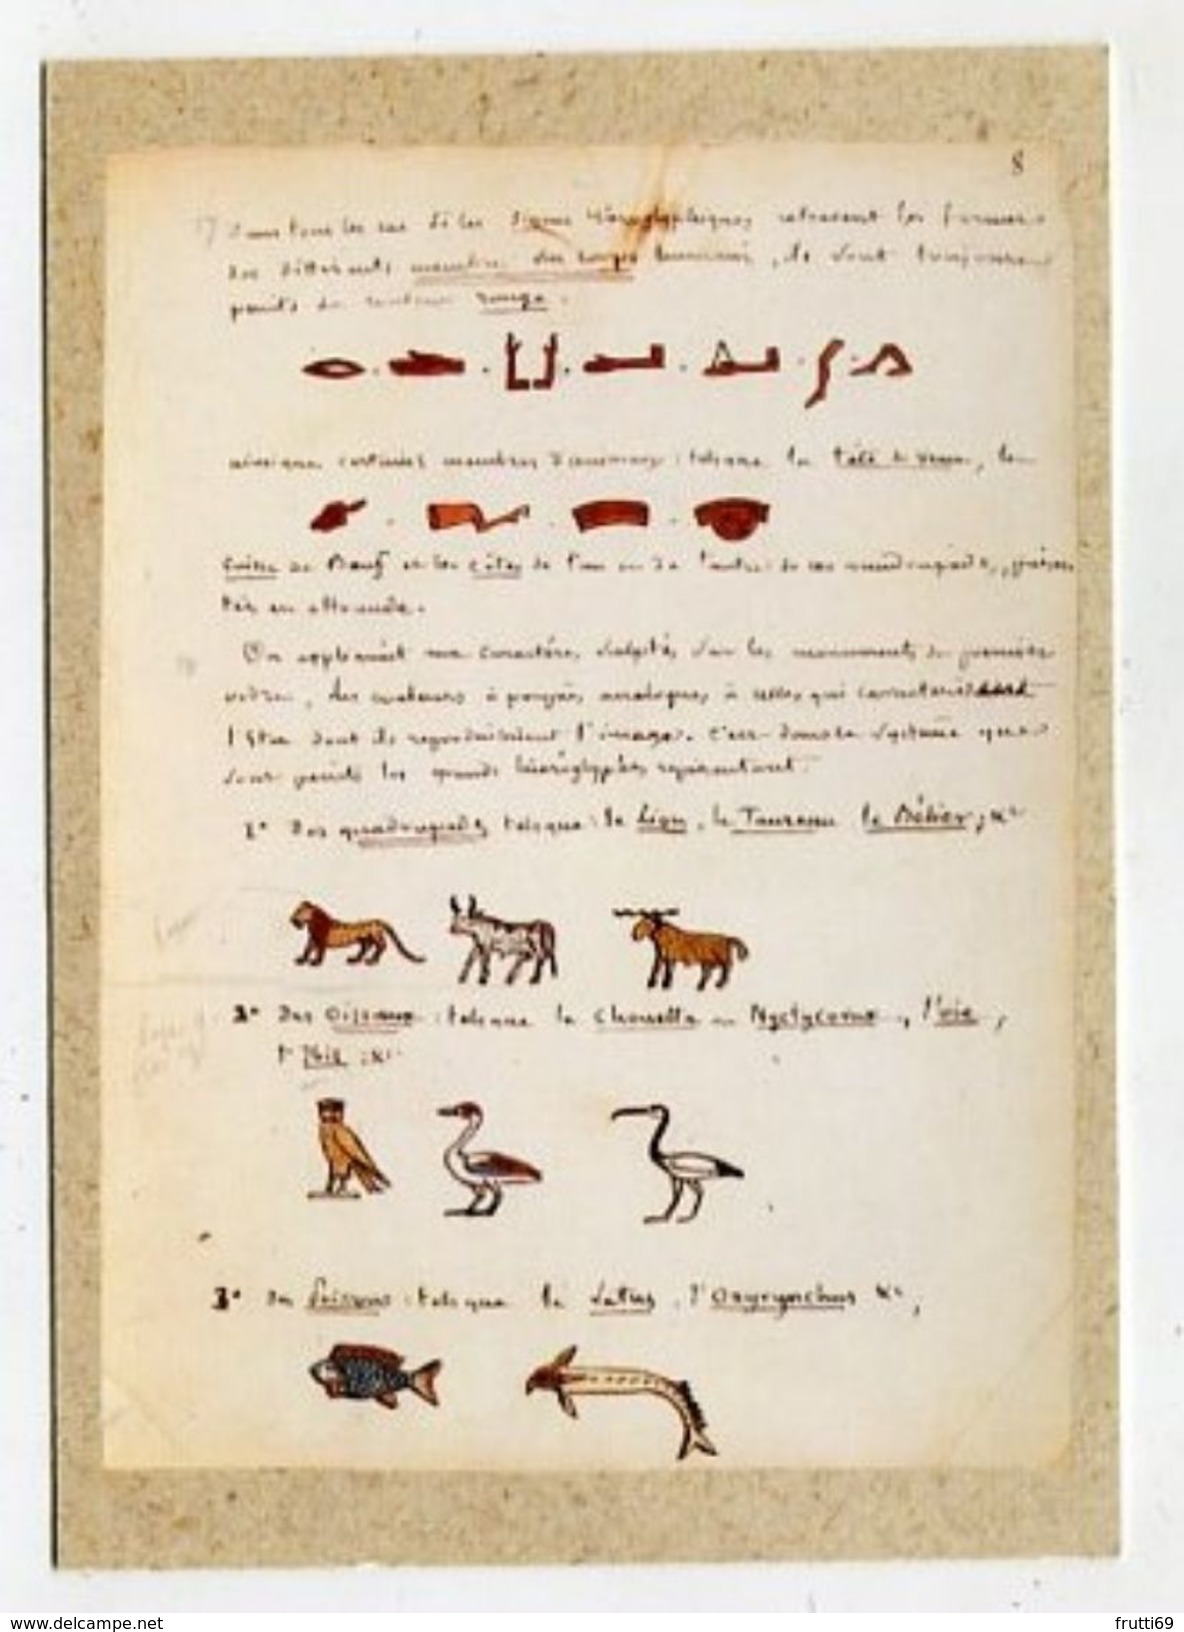 8
Dans tous les cas où les signes hiéroglyphiques retracent les formes
des différents membres du corps humain, ils sont toujours
peints de couleur rouge.
ainsi que certains membres d'animaux: tels que la tête de veau, la
Cuisse de Bœuf et les côtes de l'un ou de l'autre de ces quadrupèdes,
On appliquait aux caractères sculptés sur les monuments de premier
ordre, des couleurs à peu près analogues à celles qui caractérisaient
l'être dont ils reproduisaient l'image. C'est dans ce système que
sont peints les grands hiéroglyphes représentant:
1° Des quadrupèdes tels que: le Lion, le Taureau le Bélier, &c
2° Des Oiseaux: tels que la Chouette ou Nycticorax, l'oie,
l'Ibis: &c.
3° Des Poissons: tels que le Latus, l'Oxyrynchus &c,
delcampe.net
frutti69